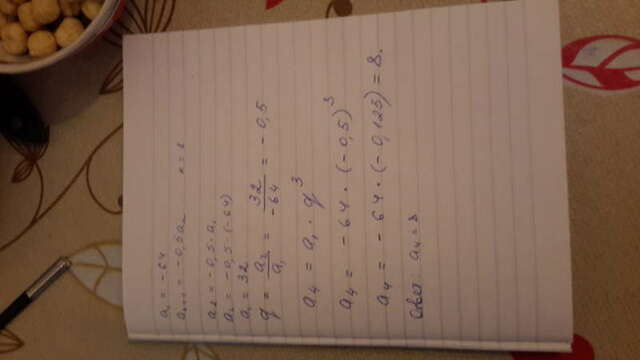 a₁ = -64
aₙ₊₁ = -0,5aₙ
a₂ = -0,5 · a₁
a₂ = -0,5 · (-64)
a₂ = 32
q = a₂/a₁ = 32/-64 = -0,5
a₄ = a₁ · q³
a₄ = -64 · (-0,5)³
a₄ = -64 · (-0,125) = 8.
Ответ: a₄ = 8